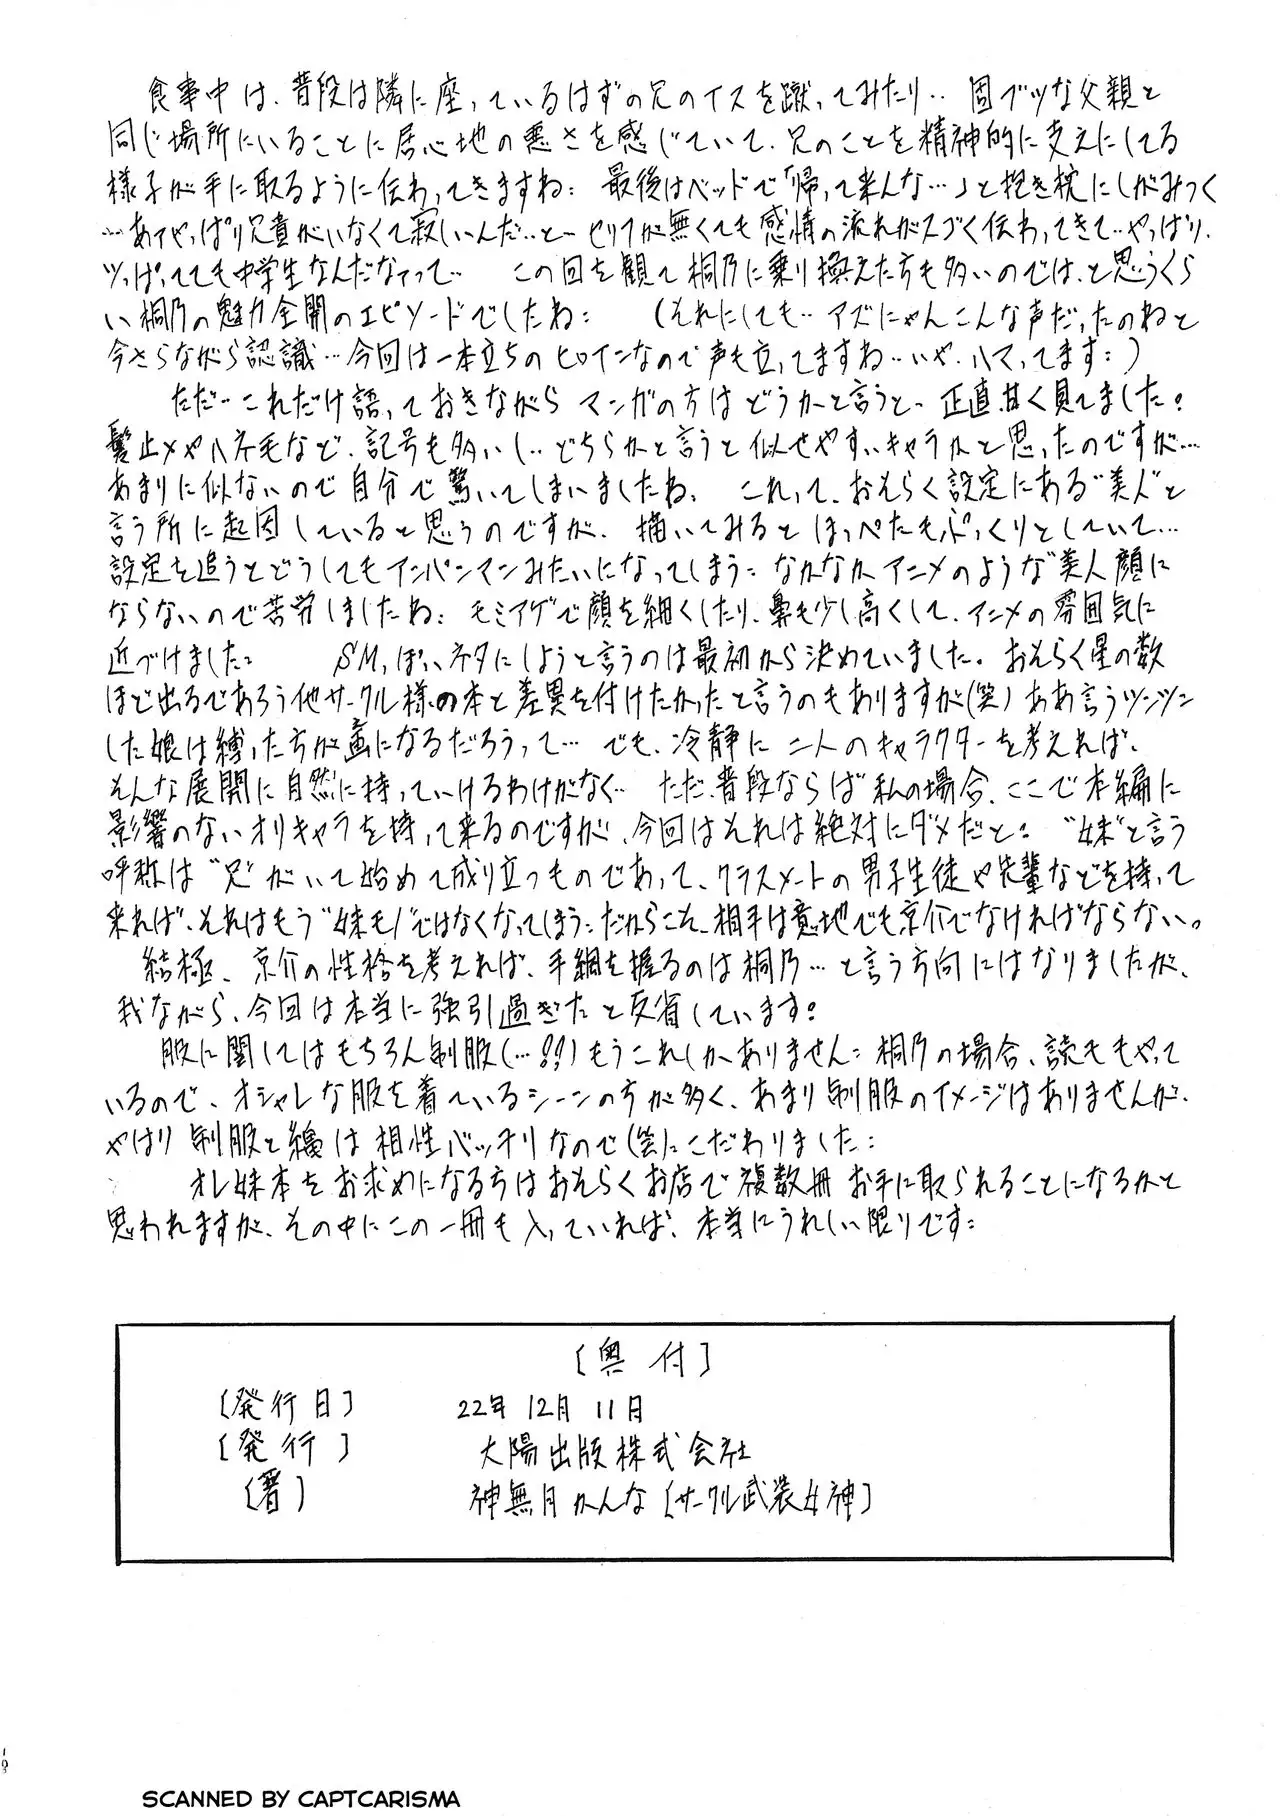 食事中は、普段は隣に座っているはずの兄のイスを蹴ってみたり‥ 固ブツな父親と
同じ場所にいることに居心地の悪さを感じていて、兄のことを精神的に支えにしてる
様子が手に取るように伝わってきますね: 最後はベッドで「帰って来んな…」と抱き枕にしがみつく
…あァやっぱり兄貴がいなくて寂しいんだ‥とー セリフが無くても感情の流れがスゴく伝わってきて‥やっぱり、
ツっぱってても中学生なんだなァって‥ この回を観て桐乃に乗り換えた方も多いのでは、と思うくら
い桐乃の魅力全開のエピソードでしたね: (それにしても‥アズにゃんこんな声だったのねと
今さらながら認識…今回は一本立ちのヒロインなので声も立ってますね‥いや、ハマってます:)
ただ‥これだけ語っておきながら マンガの方はどうかと言うと、正直、甘く見てました。
髪止メやハネ毛など、記号も多いし‥どちらかと言うと似せやすいキャラかと思ったのですが…
あまりに似ないので自分で驚いてしまいましたね、 これって、おそらく設定にある"美人"と
言う所に起因していると思うのですが、描いてみるとほっぺたもぷっくりとしていて…
設定を追うとどうしてもアンパンマンみたいになってしまう: なかなかアニメのような"美人顔に
ならないので苦労しましたね: モミアゲで顔を細くしたり、鼻も少し高くして、アニメの雰囲気に
近づけました: SMっぽいネタにしようと言うのは最初から決めていました。おそらく星の数
ほど出るであろう他サークル様の本と差異を付けたかったと言うのもありますが(笑) ああ言うツンツン
した娘は縛った方が画になるだろうって… でも、冷静に二人のキャラクターを考えれば、
そんな展開に自然に持っていけるわけがなく‥ ただ、普段ならば私の場合、ここで本編に
影響のないオリキャラを持って来るのですが、今回はそれは絶対にダメだと: "妹"と言う
呼称は"兄"がいて始めて成り立つものであって、クラスメートの男子生徒や先輩などを持って
来れば、それはもう"妹モノ"ではなくなってしまう: だからこそ、相手は意地でも京介でなければならない。
結極、京介の性格を考えれば、手綱を握るのは桐乃…と言う方向にはなりましたが、
我ながら、今回は本当に強引過ぎたと反省しています:
服に関してはもちろん制服(…!!)もうこれしかありません: 桐乃の場合、読モもやって
いるので、オシャレな服を着ているシーンの方が多く、あまり制服のイメージはありませんが、
やはり制服と縄は相性バッチリなので(笑)こだわりました:
オレ妹本をお求めになる方はおそらくお店で複数冊お手に取られることになるかと
思われますが、その中にこの一冊も入っていれば、本当にうれしい限りです:
[奥付]
[発行日] 22年12月11日
[発行] 大陽出版株式会社
[著] 神無月かんな[サークル武装女神]
SCANNED BY CAPTCARISMA